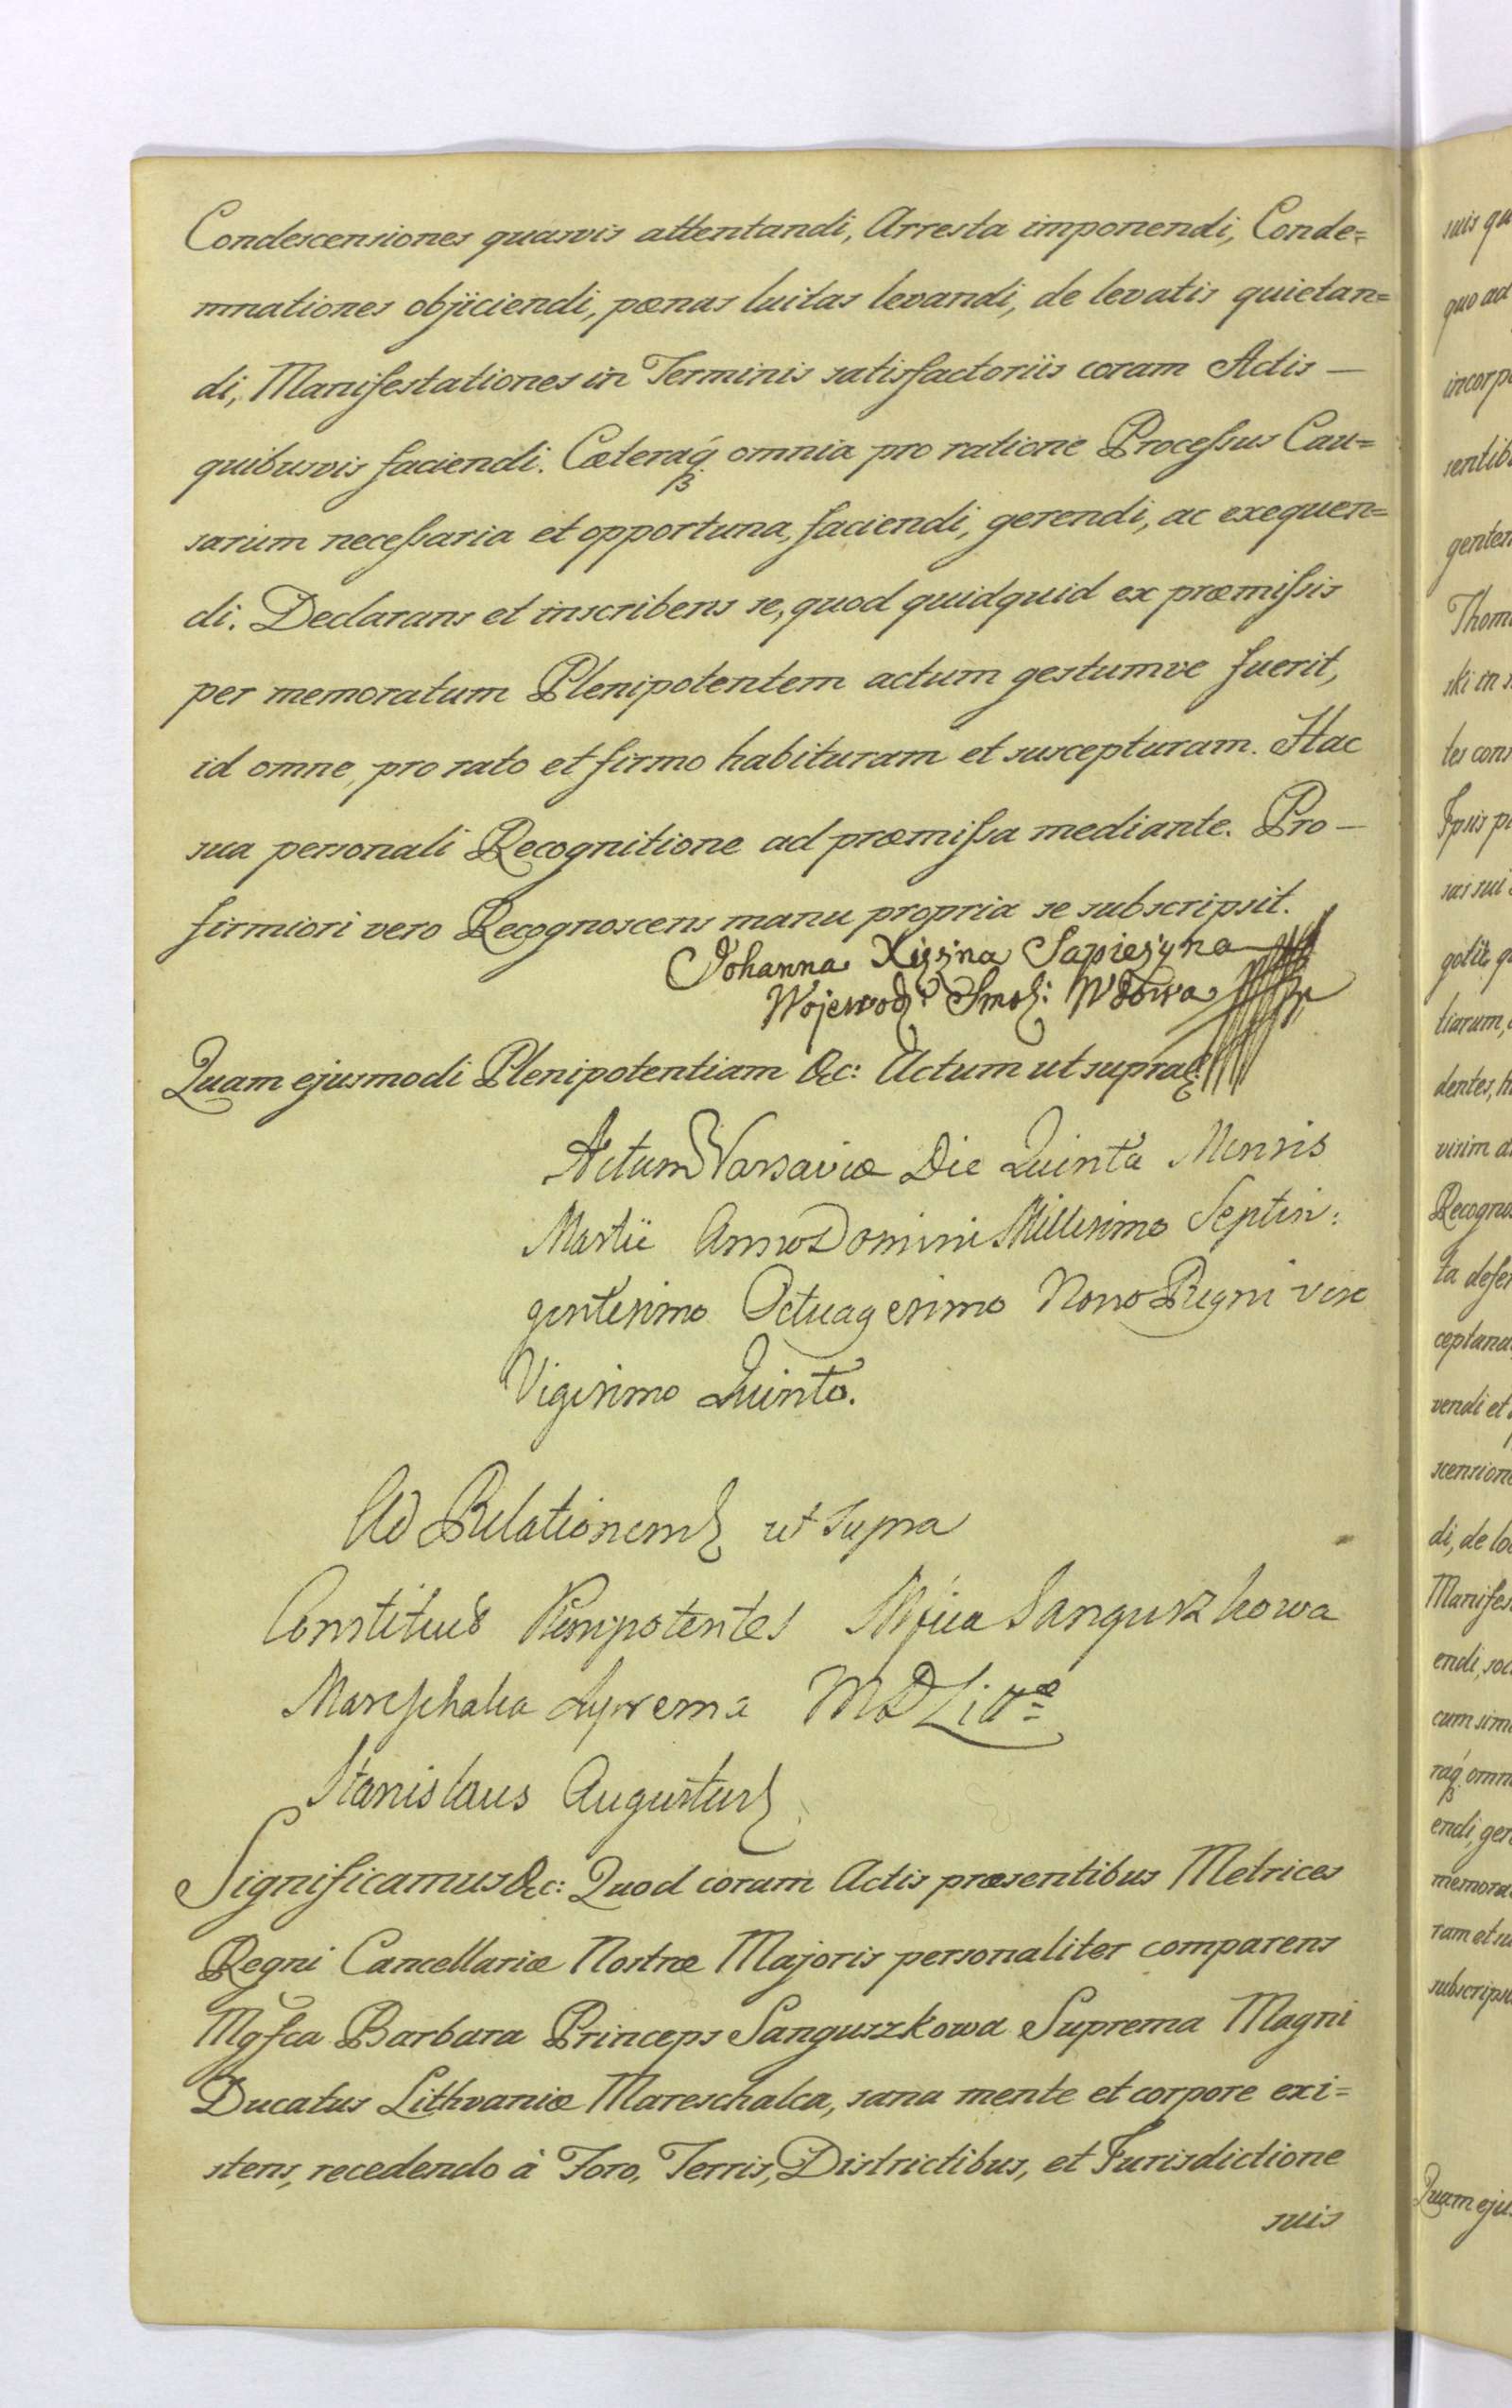 Condescensiones quasvis attentandi, Arresta imponendi, Conde=
mnationes objiciendi, pœnas luitas levandi, de levatis quietan=
di, Manifestationes in Terminis satisfactoriis coram Actis —
quibusvis faciendi. Cæteraq́ꝫ omnia pro ratione Processus Cau=
sarum necessaria et opportuna, faciendi, gerendi, ac exequen=
di. Declarans et inscribens se, quod quidquid ex præmissis
per memoratum Plenipotentem actum gestumve fuerit,
id omne, pro rato et firmo habituram et suscepturam. Hac
sua personali Recognitione ad præmissa mediante. Pro —
firmiori vero Recognoscens manu propria se subscripsit.
Johanna Xięzna Sapiezyna
Wojewodz: Smol: Wdowa
Quam ejusmodi Plenipotentiam &c: Actum ut supra
Actum Varsaviæ Die Quinta Mensis
Martii Anno Domini Millesimo Septin:
gentesimo Octuagesimo Nono Regni vero
Vigesimo Quinto.
Ad Relationem ut supra
Constituit Plenipotentes Mfica Sanguszkowa
Mareschalca Suprema MDLittæ
Stanislaus Augustus
Significamus &c: Quod coram Actis præsentibus Metrices
Regni Cancellariæ Nostræ Majoris personaliter comparens
Mgfca Barbara Princeps Sanguszkowa Suprema Magni
Ducatus Lithvaniæ Mareschalca, sana mente et corpore exi=
stens, recedendo à Foro, Terris, Districtibus, et Jurisdictione
suis